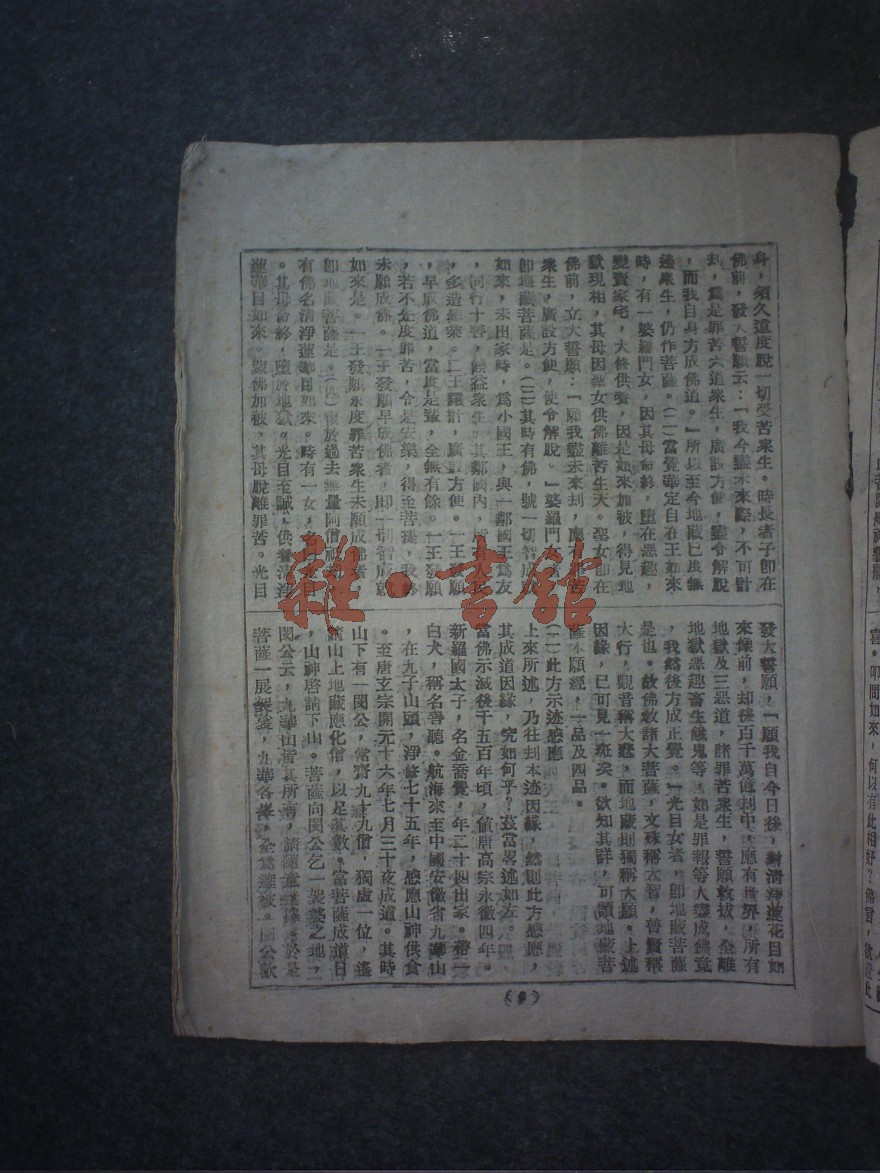 身，須久遠度脫一切受苦衆生。時長者子卽在
佛前，發大誓願云：「我今盡未來際，不可計
刦，爲是罪苦六道衆生，廣設方便，盡令解脫
，而我自身方成佛道。」所以至今地藏已度無
邊衆生，仍作菩薩。(二)當覺華定自在王如來
時，有一婆羅門女，因其母命終，墮在惡趣，
變賣家宅，大修供養，因是如來加被，得見地
獄現相，其母因聖女供佛離苦生天。聖女卽在
佛前，立大誓願：「願我盡未來刦，應有罪苦
衆生，廣設方便，使令解脫。」婆羅門女者，
卽地藏菩薩是。(三)其時有佛，號一切智成就
如來，未出家時，爲小國王，與一鄰國王爲友
，同行十善，饒益衆生。其鄰國內，所有人民
，多造惡業。二王議計，廣設方便。一王發願
，早成佛道，當度是輩，全無有餘。一王發願
，若不先度罪苦，令是安樂，得至菩提，我終
未願成佛。一王發願早成佛者，卽一切智成就
如來是。一王發願永度罪苦衆生未願成佛者，
卽地藏菩薩是。(四)復於過去無量阿僧祇刦，
有佛名淸淨蓮華目如來。時有一女，名曰光目
。其母命終，墮於地獄。光目至誠，供養淸淨
蓮華目如來。蒙佛加被，其母脫離罪苦。光目
發大誓願，「願我自今日後，對淸淨蓮花目如
來像前，却後百千萬億刦中，應有世界，所有
地獄及三惡道，諸罪苦衆生，誓願救拔，全離
地獄惡趣畜生餓鬼等，如是罪報等人盡成佛竟
，我然後方成正覺。」光目女者，卽地藏菩薩
是也。故佛敎諸大菩薩，文殊稱大智，普賢稱
大行，觀音稱大悲，而地藏則獨稱大願。上述
因緣，已可見一斑矣。欲知其詳，可讀地藏菩
薩本願經，一品及四品。
(二)此方示迹感應
上來所述，乃往刦本迹因緣，然則此方感應，
其成道因緣，究如何乎？茲當畧述如左。
當佛示滅後千五百年頃，値唐高宗永徽四年。
新羅國太子，名金喬覺，年二十四出家。帶一
白犬，稱名善聽。航海來至中國安徽省九華山
，在九子山頭，淨修七十五年，感應山神供食
。至唐玄宗開元十六年七月三十夜成道。其時
山下有一閔公，常齋九十九僧，獨虛一位，遙
請山上地藏應化僧，以足其數。當菩薩成道日
，山神啓請下山。菩薩向閔公乞一袈裟之地，
閔公云，九華山皆其所有，請隨意取。於是
菩薩一展袈裟，九華各峯，全爲遮被。閔公歎
(8)
喜。叩問如來，何以有此相好？佛言，欲證此